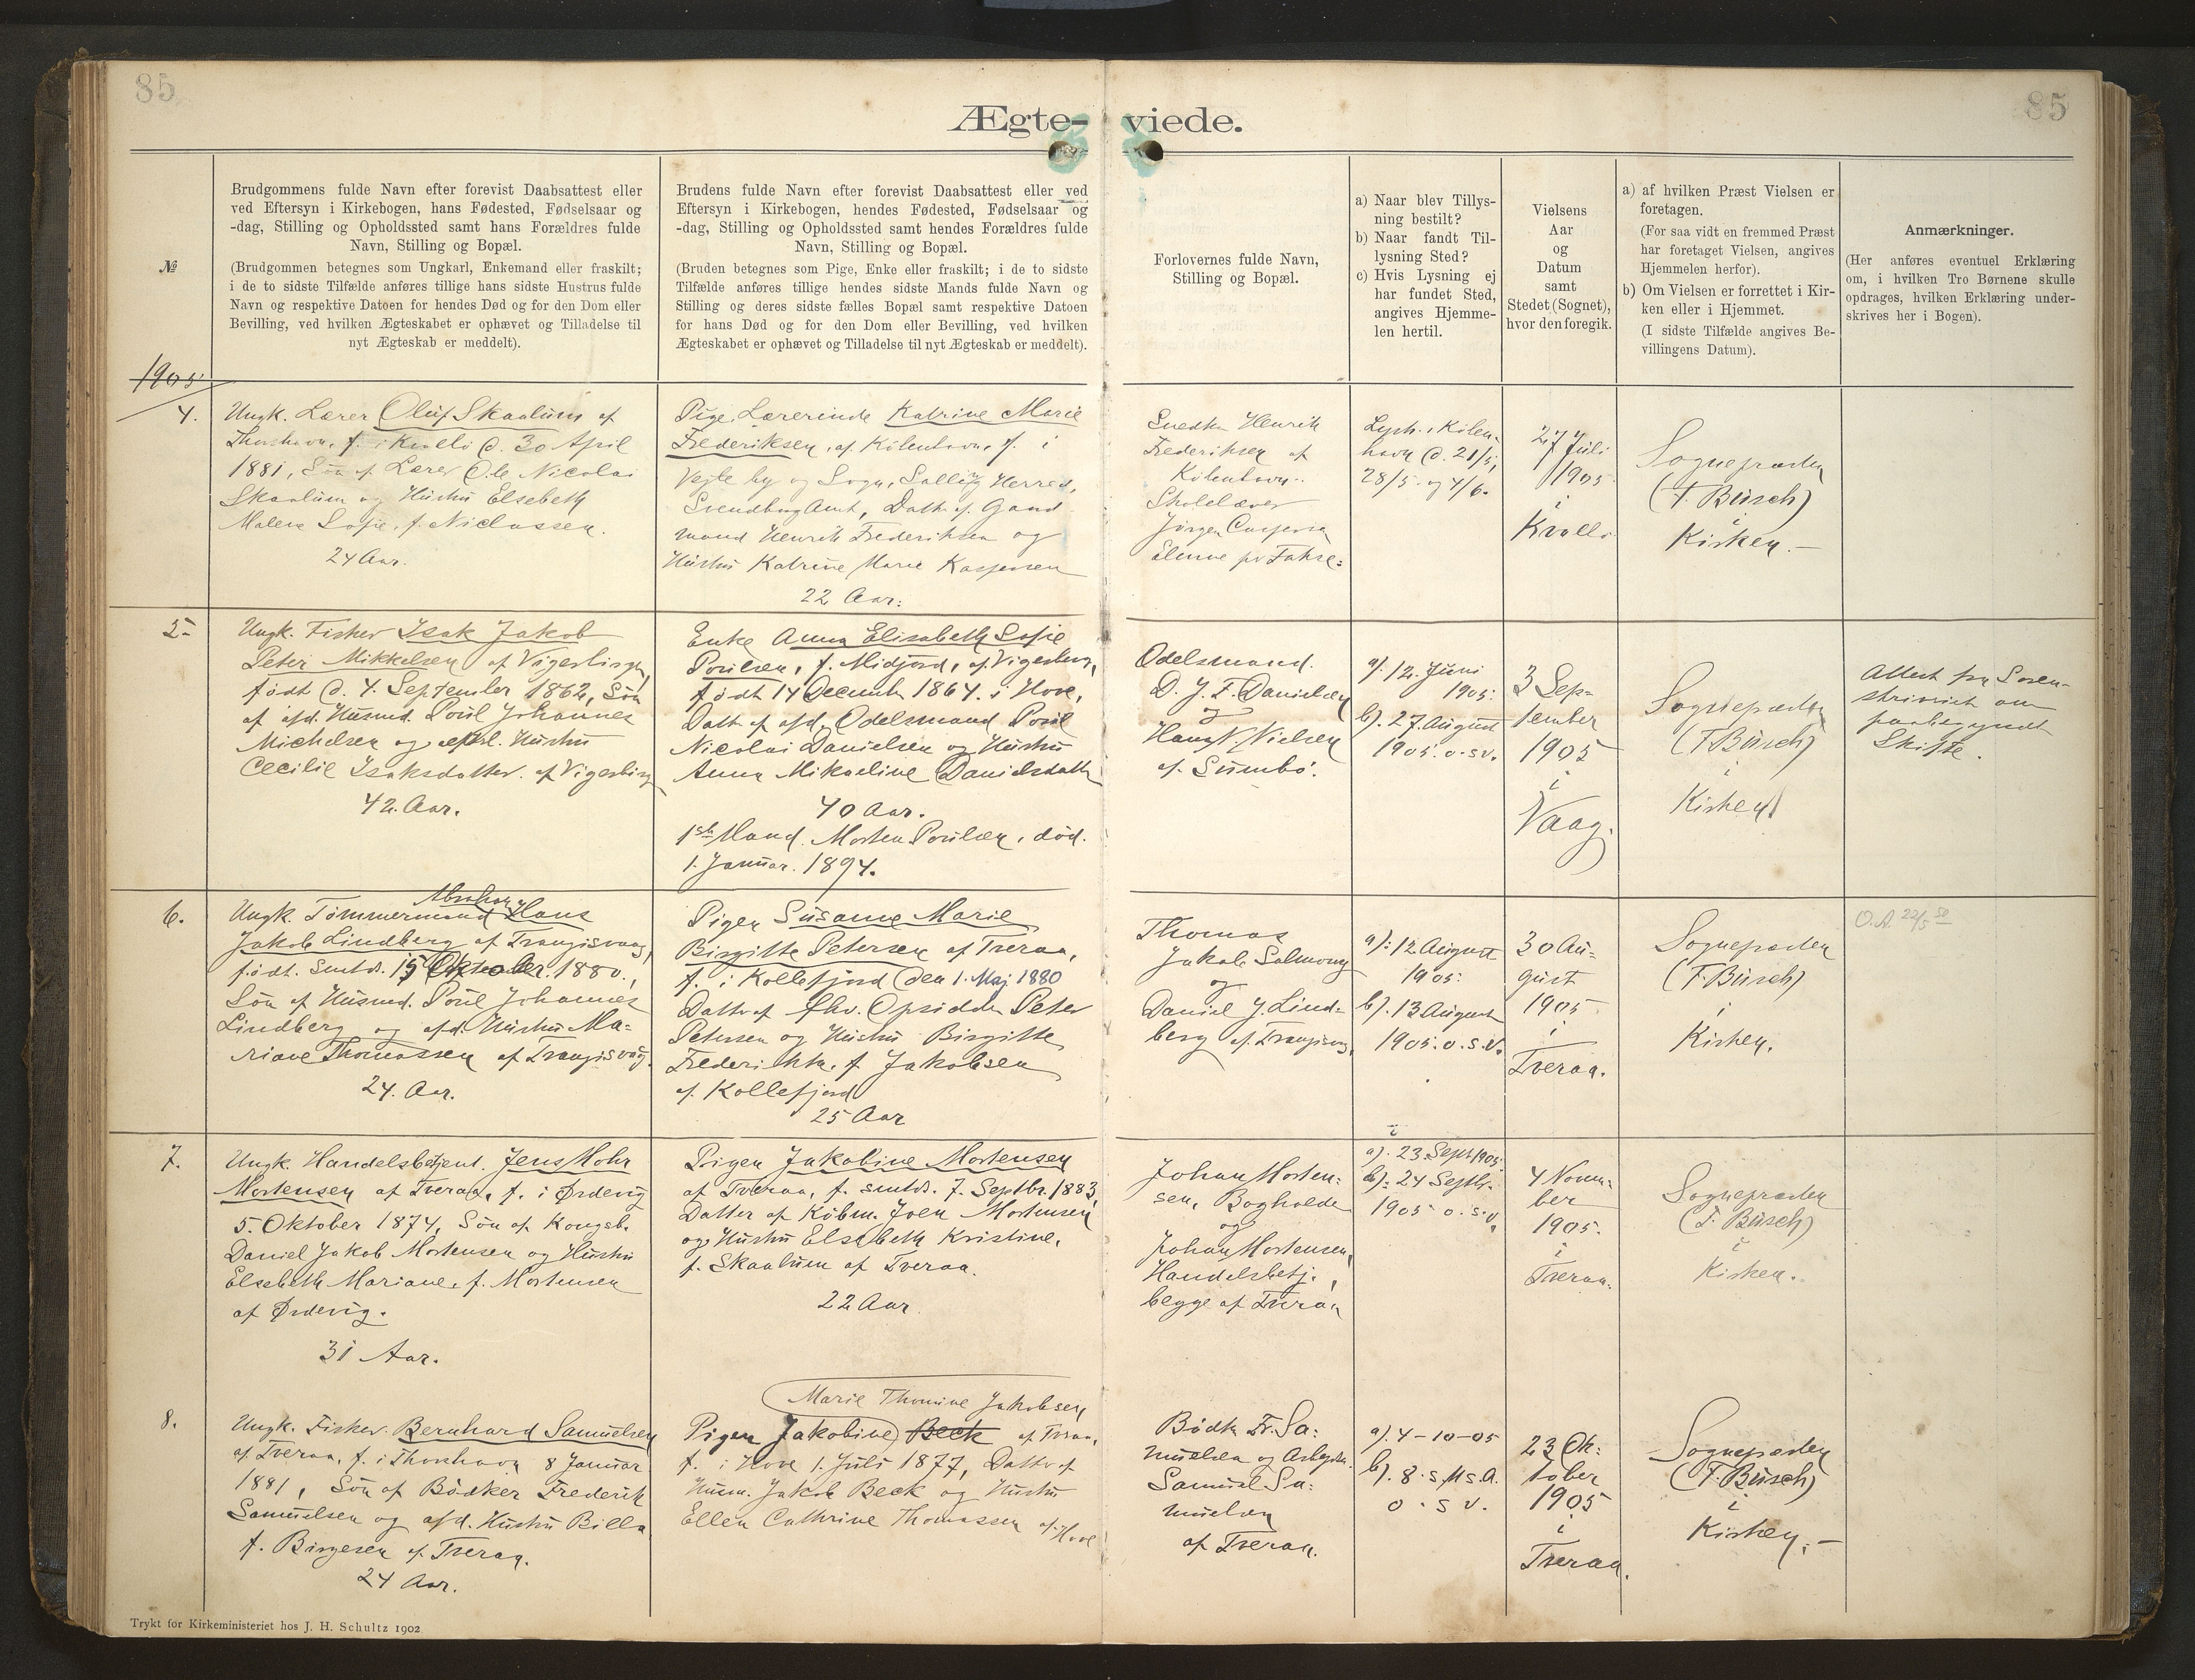 85
85
Ægte-viede.
№
Brudgommens fulde Navn efter forevist Daabsattest eller
ved Eftersyn i Kirkebogen, hans Fødested, Fødselsaar og
-dag, Stilling og Opholdssted samt hans Forældres fulde
Navn, Stilling og Bopæl.
(Brudgommen betegnes som Ungkarl, Enkemand eller fraskilt;
i de to sidste Tilfælde anføres tillige hans sidste Hustrus fulde
Navn og respektive Datoen for hendes Død og for den Dom eller
Bevilling, ved hvilken Ægteskabet er ophævet og Tilladelse til
nyt Ægteskab er meddelt).
Brudens fulde Navn efter forevist Daabsattest eller ved
Eftersyn i Kirkebogen, hendes Fødested, Fødselsaar og
-dag, Stilling og Opholdssted samt hendes Forældres fulde
Navn, Stilling og Bopæl.
(Bruden betegnes som Pige, Enke eller fraskilt; i de to sidste
Tilfælde anføres tillige hendes sidste Mands fulde Navn og
Stilling og deres sidste fælles Bopæl samt respektive Datoen
for hans Død og for den Dom eller Bevilling, ved hvilken
Ægteskabet er ophævet og Tilladelse til nyt Ægteskab er meddelt).
Forlovernes fulde Navn,
Stilling og Bopæl.
a) Naar blev Tillys-
ning bestilt?
b) Naar fandt Til-
lysning Sted?
c) Hvis Lysning ej
har fundet Sted,
angives Hjemme-
len hertil.
Vielsens
Aar
og
Datum
samt
Stedet (Sognet),
hvor den foregik.
a) af hvilken Præst Vielsen er
foretagen.
(For saa vidt en fremmed Præst
har foretaget Vielsen, angives
Hjemmelen herfor).
b) Om Vielsen er forrettet i Kir-
ken eller i Hjemmet.
(I sidste Tilfælde angives Be-
villingens Datum).
Anmærkninger.
(Her anføres eventuel Erklæring
om, i hvilken Tro Børnene skulle
opdrages, hvilken Erklæring under-
skrives her i Bogen).
1905
4.
Ungk. Lærer Oluf Skaalum af
Thorshavn, f. i Kvalbö d. 30 April
1881, Søn af Lærer Ole Nicolai
Skaalum og Hustru Elsebeth
Malene Sofie, f. Niclassen.
24 Aar.
Pige, Lærerinde Katrine Marie
Frederiksen, af Köbenhavn, f. i
Vejle by og Sogn, Salling Herred,
Svendborg Amt, Datt. af Gaard
mand Henrik Frederiksen og
Hustru Katrine Marie Kaspersen
22 Aar.
Snedker Henrik
Frederiksen af
Köbenhavn.
Skolelærer
Jörgen Caspersen
Lyst. i Köben-
havn d. 21/5,
28/5 og 4/6.
27 Juli
1905
i
Kvalbö
Sognepræsten
(F. Büsch)
i
Kirken.
5.
Ungk. Fisker Isak Jakob
Peter Mikkelsen af Vigerbirge,
født d. 4. September 1862, Søn
af afd. Husmd. Poul Johannes
Michelsen og efterl. Hustru
Cecilie Isaksdatter af Vigerbirge
42. Aar.
Enke Anna Elisabeth Sofie
Poulsen, f. Midjord, af Vigerbirge,
født 14 December 1864 i Hove,
Datt af afd. Odelsmand Poul
Nicolai Danielsen og Hustru
Anna Mikaeline Danielsdatter
40 Aar.
1ste Mand. Morten Poulsen, død.
1. Januar. 1894.
Odelsmand
D. J. F. Danielsen
og
Hans N. Nielsen
af Sumbø.
a). 12. Juni
1905.
b). 27. August
1905. o. s. v.
3 Sep-
tember
1905
i
Vaag.
Sognepræsten
(F. Büsch)
i
Kirken
Attest fra Soren-
skriveriet om
paabegyndt
Skifte.
6.
Abraham
Ungk. Tømmermand Hans
Jakob Lindberg af Trangisvaag,
født. smstds. 15 Oktober 1880,
Søn af Husmd. Poul Johannes
Lindberg og afd. Hustru Ma-
riane Thomassen af Trangisvaag.
24. Aar.
Pigen Susanne Marie
Birgitte Petersen af Tveraa,
f. i Kollefjord den 1. Maj 1880
Datter af fhv. Opsidder Peter
Petersen og Hustru Birgitte
Frederikke f. Jakobsen
af Kollefjord
25 Aar
Thomas
Jakob Salmong
og
Daniel J. Lind-
berg af Trangisvaag.
a). 12 August
1905.
b). 13 August
1905. o. s. v.
30 Au-
gust
1905
i
Tveraa.
Sognepræsten
(F. Büsch)
i
Kirken.
O.A. 22/5 50
7.
Ungk. Handelsbetjent. Jens Mohr
Mortensen af Tveraa, f. i Ørdevig
5. Oktober 1874, Søn af Kongsb.
Daniel Jakob Mortensen og Hustru
Elsebeth Mariane, f. Mortensen
af Ørdevig.
31 Aar.
Pigen Jakobine Mortensen
af Tveraa, f. smstds. 7. Septbr. 1883,
Datter af Købm. Joen Mortensen
og Hustru Elsebeth Kristine,
f. Skaalum af Tveraa.
22 Aar
Johan Morten-
sen, Bogholder
og
Johan Mortensen,
Handelsbetj.,
begge af Tveraa
a). 23. Sept 1905.
b). 24 Septbr.
1905 o. s. v.
4 Novem-
ber
1905.
i
Tveraa.
Sognepræsten
(F. Büsch)
i
Kirken.
8.
Ungk. Fisker Bernhard Samuelsen
af Tveraa, f. i Thorshavn 8 Januar
1881, Søn af Bødker Frederik
Samuelsen og afd. Hustru Billa
f. Birgesen af Tveraa.
24 Aar.
Marie Thomine Jakobsen
Pigen Jakobine Beck af Tveraa,
f. i Hove 1. Juli 1877, Datter af
Husm. Jakob Beck og Hustru
Ellen Cathrine Thomassen af Hove
Bødk. Fr. Sa-
muelsen og Arbejdsm.
Samuel Sa-
muelsen
af Tveraa.
a). 4-10-05
b). 8. s. M. s. A.
o. s. v.
23 Ok-
tober
1905
i
Tveraa.
Sognepræsten
(F. Büsch)
i
Kirken.
Trykt for Kirkeministeriet hos J. H. Schultz 1902